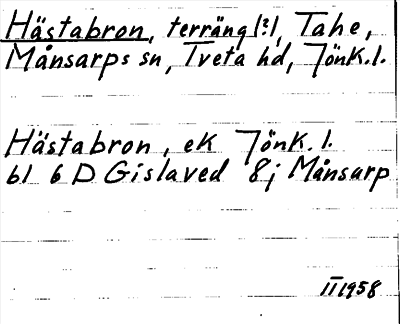 Hästabron, terräng (?), Tahe,
Månsarps sn, Tveta hd, Jönk. l.
Hästabron, ek Jönk. l.
bl 6 D Gislaved 8j Månsarp
II 1958